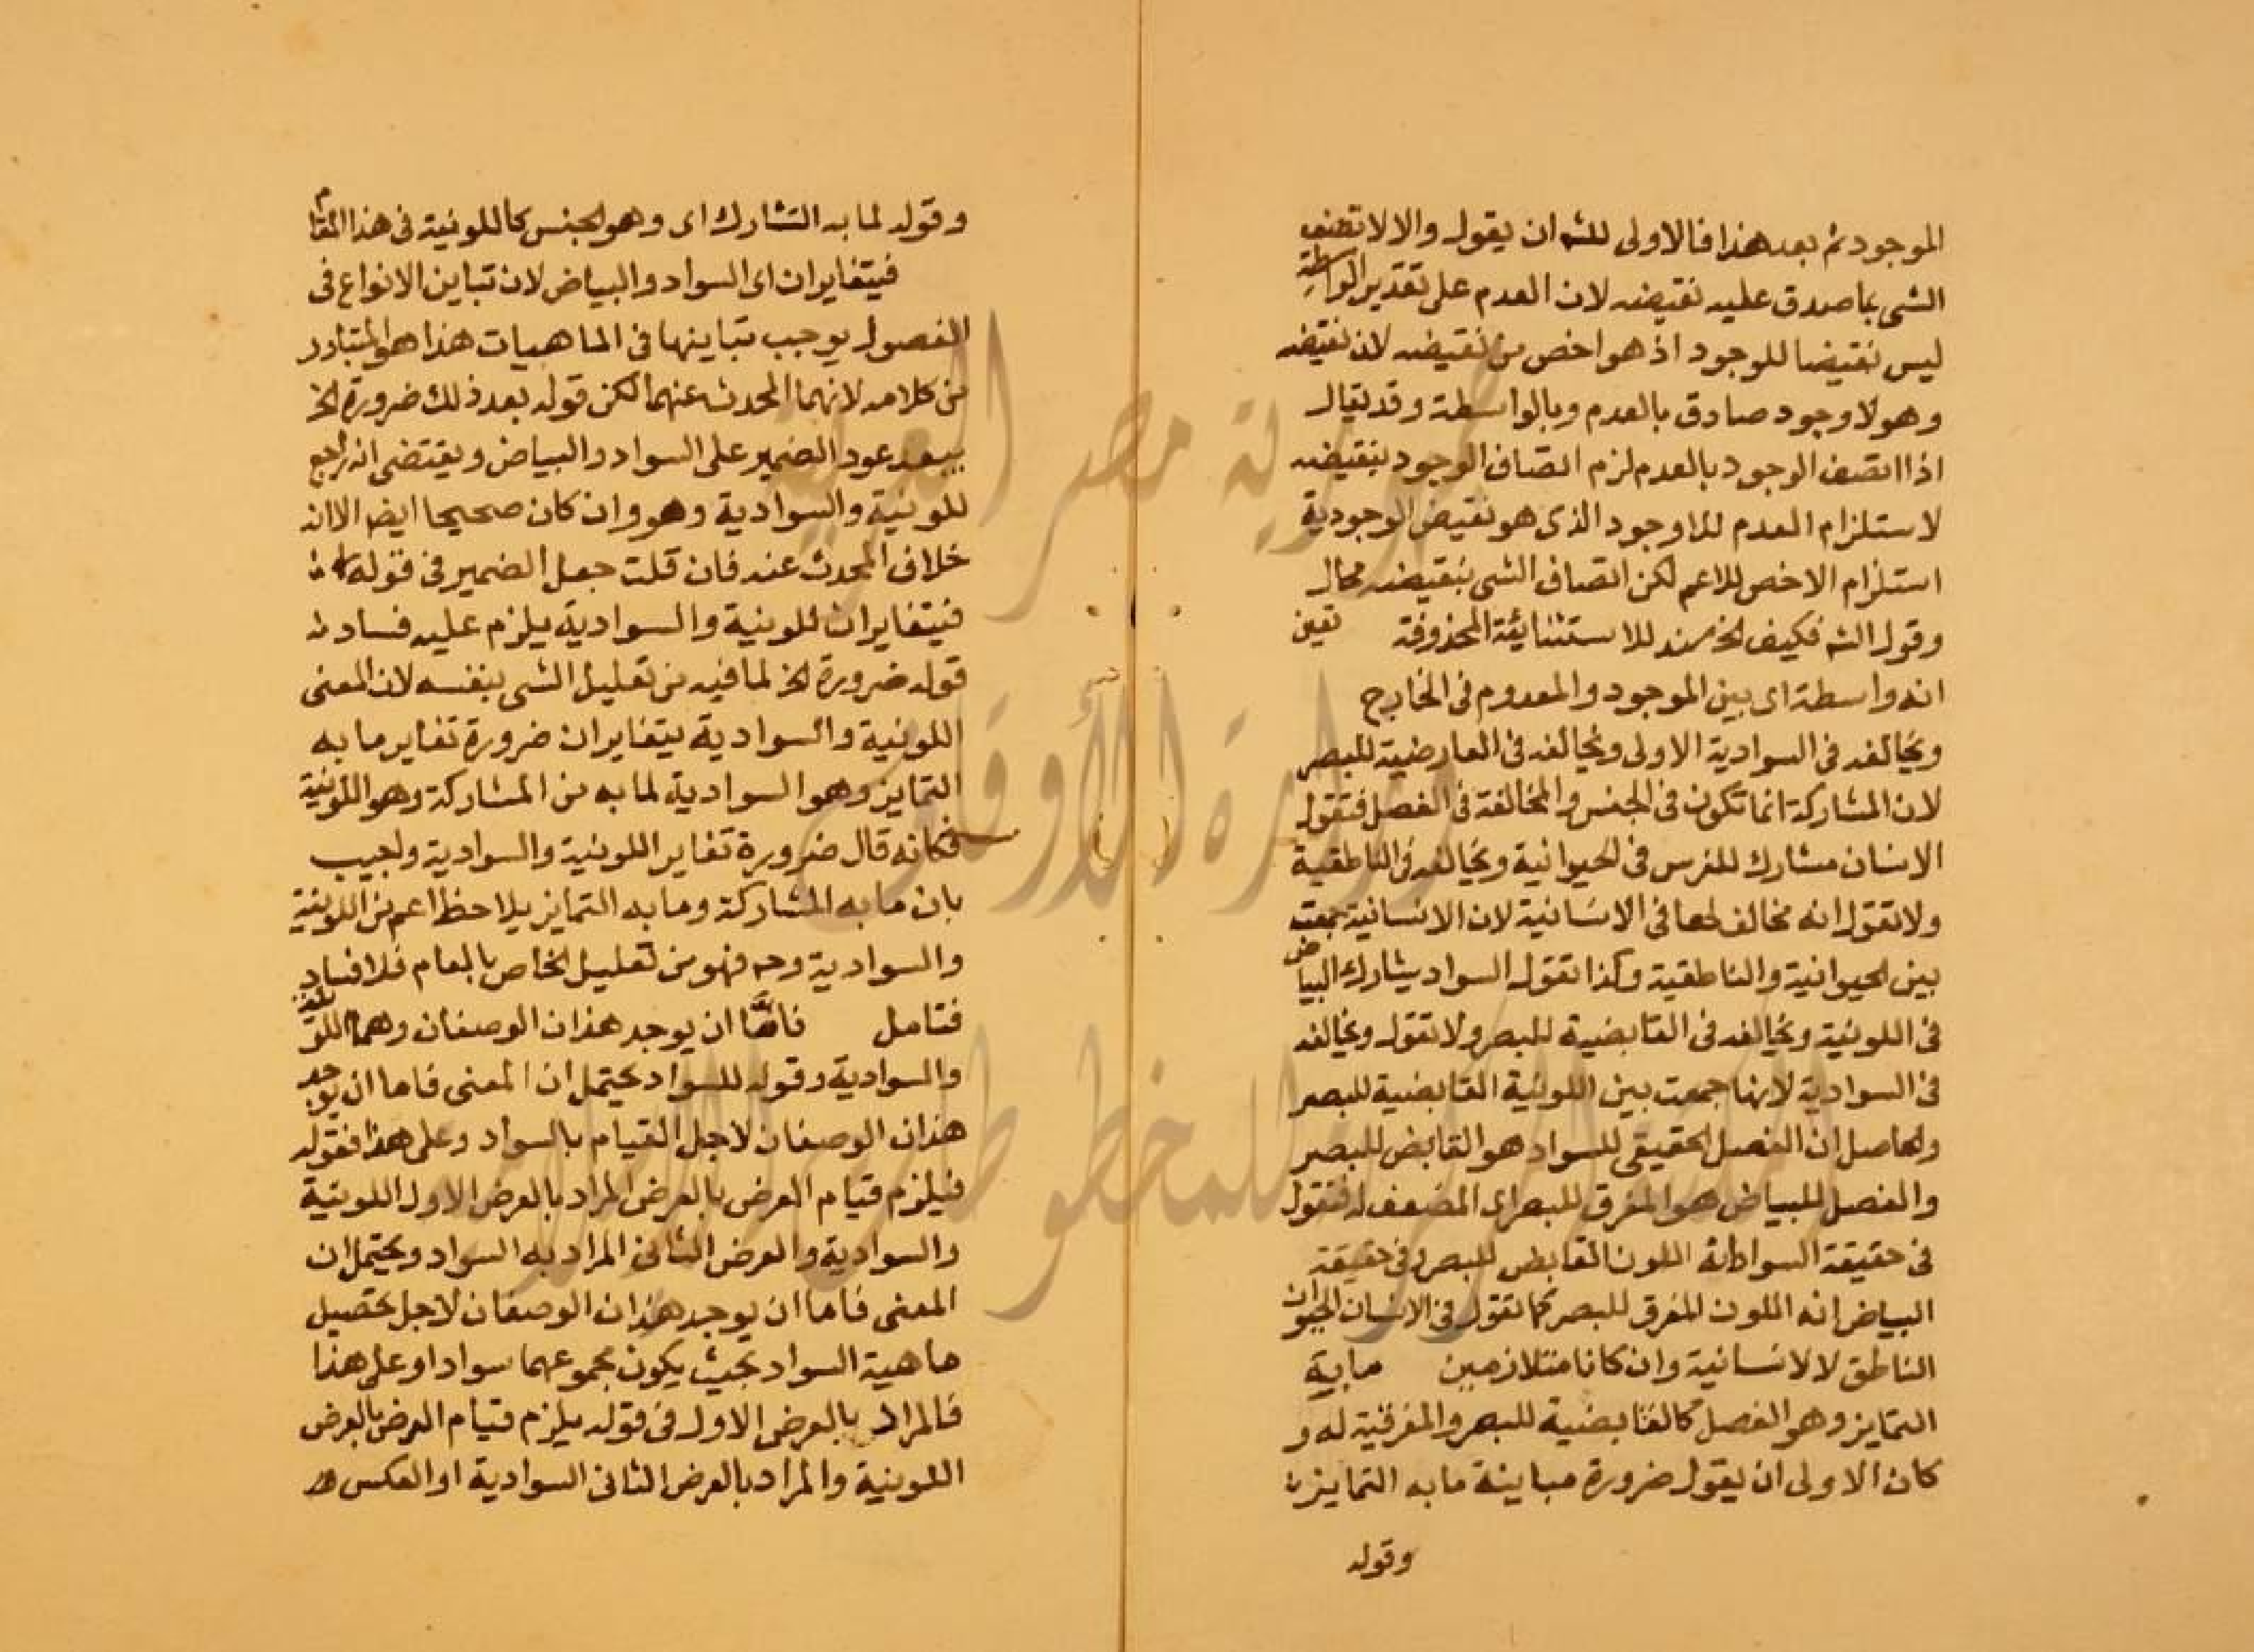 الموجود ثم بعد هذا فالاولى للشه ان يقول والا لاتصف
الشى بما صدق عليه نقيضه لان العدم على تقدير الواسطة
ليس نقيضا للوجود اذ هو اخص من نقيضه لان نقيضه
وهو لا وجود صادق بالعدم وبالواسطة وقد يقال
اذا اتصف الوجود بالعدم لزم اتصاف الوجود بنقيضه
لاستلزام العدم للا وجود الذى هو نقيض الوجودية
استلزام الاخص للاعم لكن اتصاف الشى بنقيضه محال
وقول الشه فكيف الخ سند للاستثنائية المحذوفة تعين
انه واسطة اى بين الموجود والمعدوم فى الخارج
ويخالفه فى السوادية الاولى ويخالفه فى العارضية للبصر
لان المشاركة انما تكون فى الجنس والمخالفة فى الفصل فتقول
الانسان مشارك للفرس فى الحيوانية ويخالفه فى الناطقية
ولا تقول انه مخالف لها فى الانسانية لان الانسانية جمعت
بين الحيوانية والناطقية وكذا تقول السواد يشارك البياض
فى اللونية ويخالفه فى القابضية للبصر ولا تقول ويخالفه
فى السوادية لانها جمعت بين اللونية القابضية للبصر
والحاصل ان الفصل الحقيقى للسواد هو القابض للبصر
والفصل للبياض هو المفرق للبصر اى المضعف له فتقول
فى حقيقة السواد انه اللون القابض للبصر وفى حقيقة
البياض انه اللون المفرق للبصر كما تقول فى الانسان الحيوان
الناطق لا الانسانية وان كانا متلازمين مابه
التمايز وهو الفصل كالقابضية للبصر والمفرقية له و
كان الاولى ان يقول ضرورة مباينة ما به التمايز
وقوله
وقوله لما به التشارك اى وهو الجنس كاللونية فى هذا المقام
فيتغايران اى السواد والبياض لان تباين الانواع فى
الفصول يوجب تباينها فى الماهيات هذا هو المتبادر
من كلامه لانهما المحدث عنهما لكن قوله بعد ذلك ضرورة الخ
يبعد عود الضمير على السواد والبياض ويقتضى انه راجع
للونية والسوادية وهو وان كان صحيحا ايضا الا انه
خلاف المحدث عنه فان قلت جعل الضمير فى قوله
فيتغايران للونية والسوادية يلزم عليه فساد
قوله ضرورة الخ لما فيه من تعليل الشى بنفسه لان المعنى
اللونية والسوادية يتغايران ضرورة تغاير ما به
التمايز وهو السوادية لما به من المشاركة وهو اللونية
فكانه قال ضرورة تغاير اللونية والسوادية واجيب
بان ما به المشاركة وما به التمايز يلاحظ اعم من اللونية
والسوادية وحه فهو من تعليل الخاص بالعام فلا فساد
فتامل فاما ان يوجد هذان الوصفان وهما اللونية
والسوادية وقوله للسواد يحتمل ان المعنى فاما ان يوجد
هذان الوصفان لاجل القيام بالسواد وعلى هذا فقوله
فيلزم قيام العرض بالعرض المراد بالعرض الاول اللونية
والسوادية والعرض الثانى المراد به السواد ويحتمل ان
المعنى فاما ان يوجد هذان الوصفان لاجل تحصيل
ماهية السواد بحيث يكون مجموعهما سوادا وعلى هذا
فالمراد بالعرض الاول فى قوله يلزم قيام العرض بالعرض
اللونية والمراد بالعرض الثانى السوادية او العكس